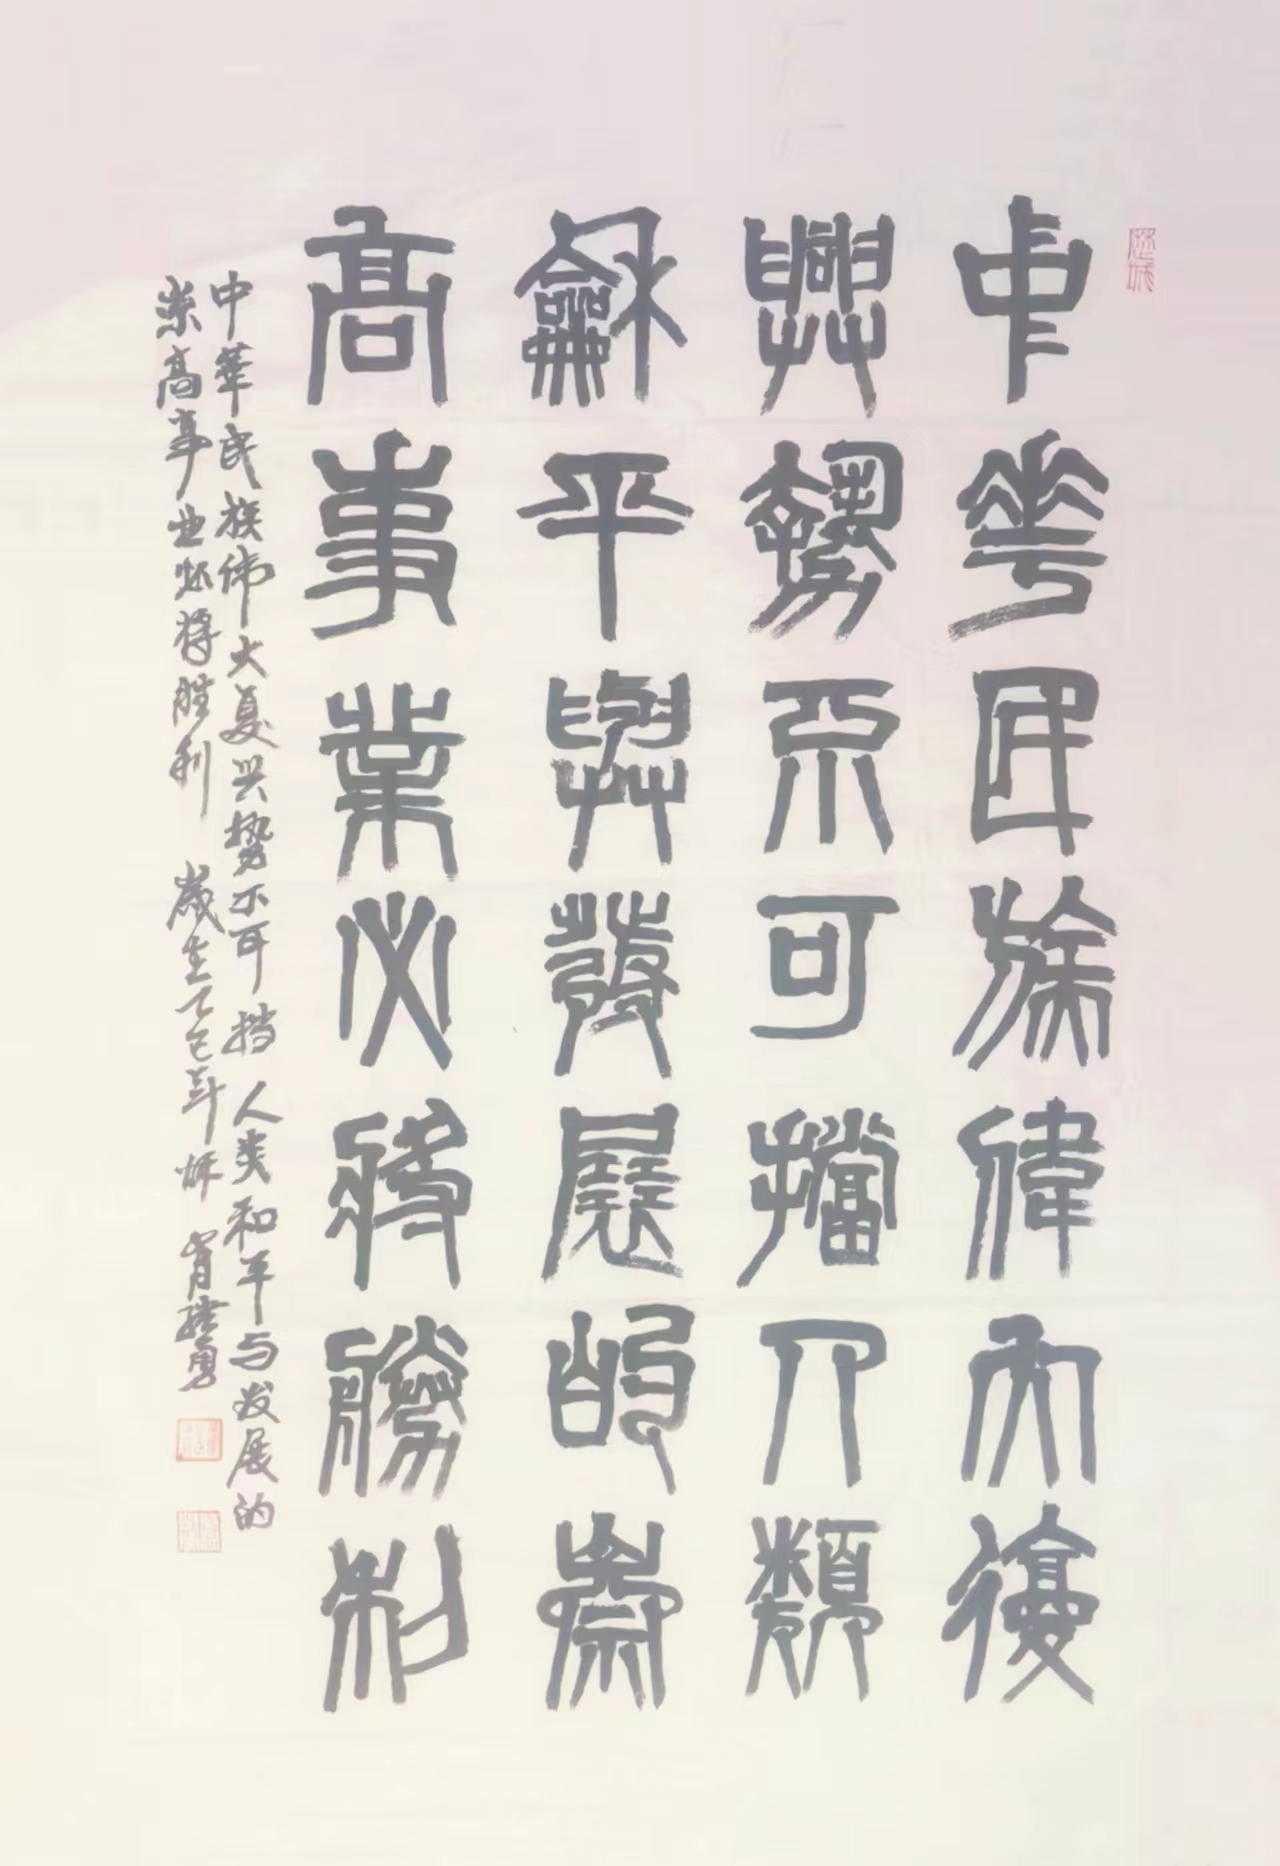 中華民族偉大復
興勢不可擋人類
龢平與發展的崇
高事業必將勝利
中華民族伟大复兴势不可挡人类和平与发展的
崇高事业必将胜利 歲在乙巳年 肖 勇